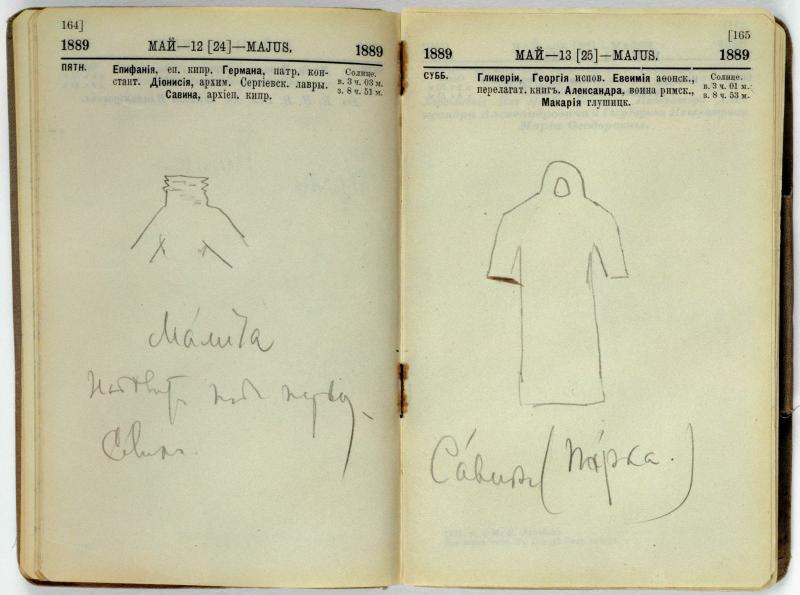 164]
1889 МАЙ—12 [24]—MAJUS. 1889
ПЯТН.
Епифанія, еп. кипр. Германа, патр. кон-
стант. Діонисія, архим. Сергіевск. лавры.
Савина, архіеп. кипр.
Солнце.
в. 3 ч. 03 м.
з. 8 ч. 51 м.
Ма́лица
подъ
[165
1889 МАЙ—13 [25]—MAJUS. 1889
СУББ.
Гликеріи, Георгія испов. Евѳимія аѳонск.,
перелагат. книгъ. Александра, воина римск.,
Макарія глушицк.
Солнце.
в. 3 ч. 01 м.
з. 8 ч. 53 м.
Са́викъ (па́рка.)